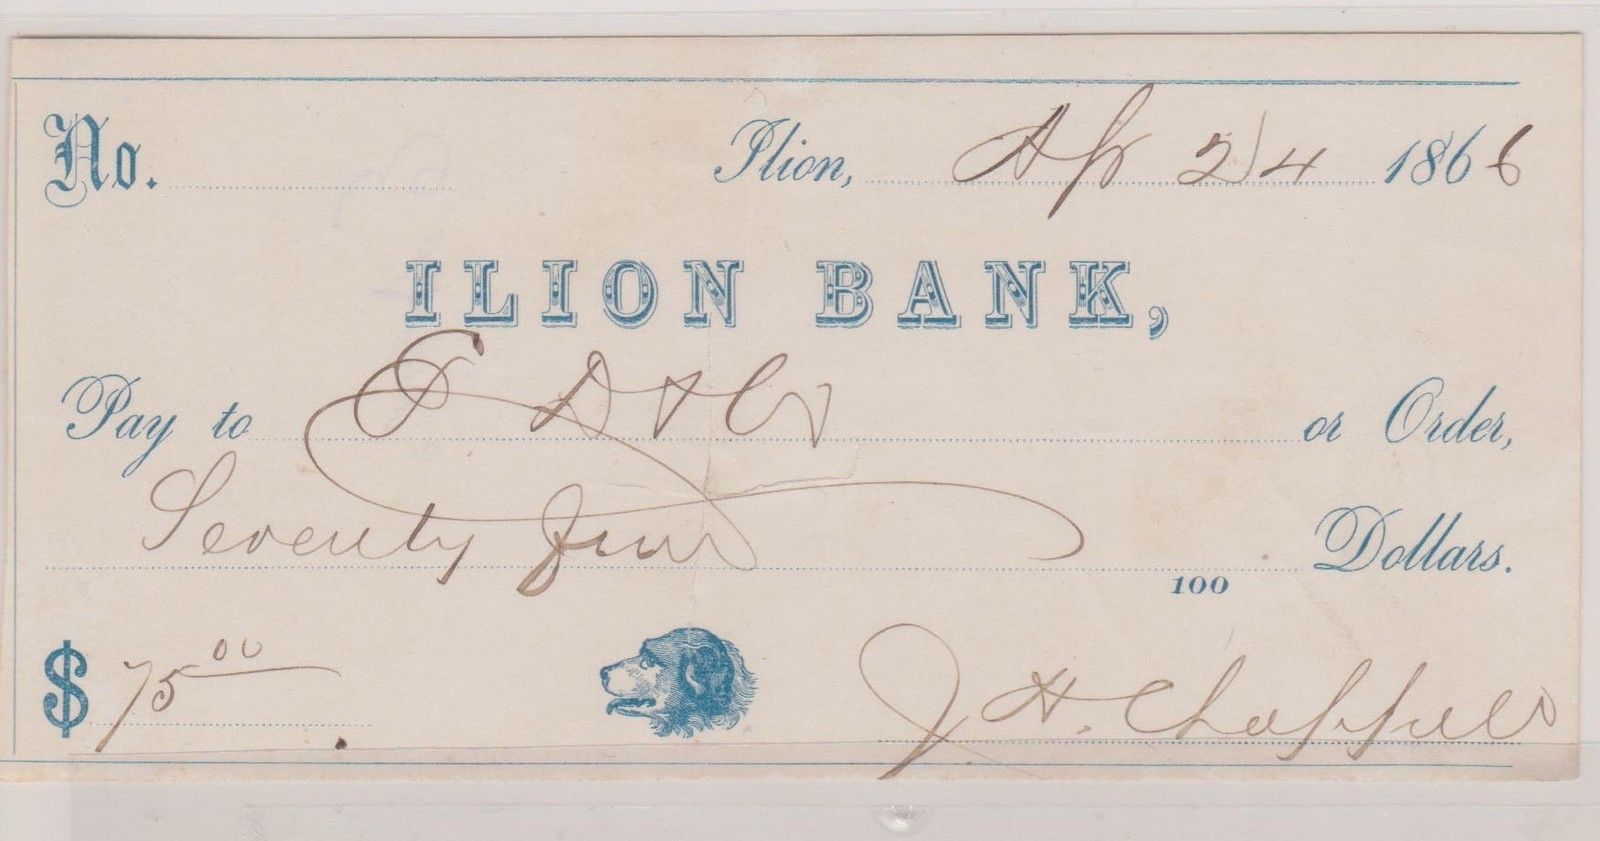 No.
Ilion, Ap 24 1866
ILION BANK,
Pay to E D & Co or Order,
Seventy five
100 Dollars.
$ 75 00
J H. Chappell